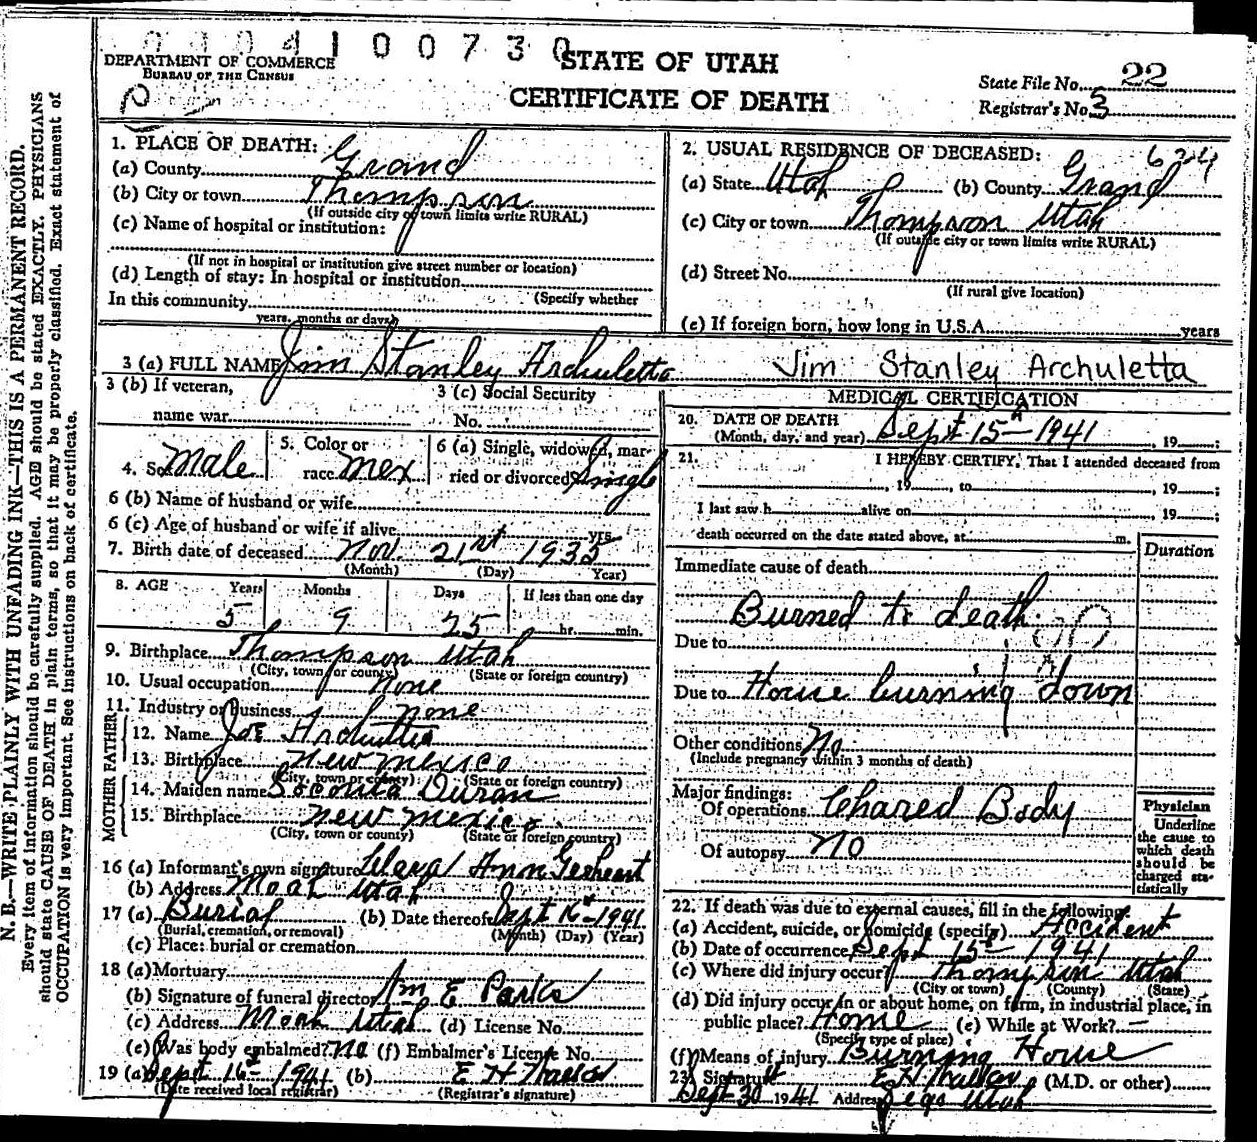 000410 0730
DEPARTMENT OF COMMERCE
BUREAU OF THE CENSUS
STATE OF UTAH
CERTIFICATE OF DEATH
State File No. 22
Registrar's No. 5
1. PLACE OF DEATH:
(a) County Grand
(b) City or town Thompson
(If outside city or town limits write RURAL)
(c) Name of hospital or institution:
(If not in hospital or institution give street number or location)
(d) Length of stay: In hospital or institution
(Specify whether
In this community
years, months or days)
2. USUAL RESIDENCE OF DECEASED: 624
(a) State Utah (b) County Grand
(c) City or town Thompson Utah
(If outside city or town limits write RURAL)
(d) Street No.
(If rural give location)
(e) If foreign born, how long in U.S.A. years
3 (a) FULL NAME Jim Stanley Archuletta Jim Stanley Archuletta
3 (b) If veteran,
name war
3 (c) Social Security
No.
4. Sex Male
5. Color or
race Mex
6 (a) Single, widowed, mar-
ried or divorced Single
6 (b) Name of husband or wife
6 (c) Age of husband or wife if alive yrs.
7. Birth date of deceased Nov. 21st 1935
(Month) (Day) Year)
8. AGE Years Months Days If less than one day
5 9 25 hr. min.
9. Birthplace Thompson Utah
(City, town or county) (State or foreign country)
10. Usual occupation none
11. Industry or Business none
FATHER
12. Name Joe Archuletta
13. Birthplace New Mexico
(City, town or county) (State or foreign country)
MOTHER
14. Maiden name Duran
15. Birthplace New Mexico
(City, town or county) (State or foreign country)
16 (a) Informant's own signature Ann
(b) Address Moab Utah
17 (a) Burial (b) Date thereof Sept 16th 1941
(Burial, cremation, or removal) (Month) (Day) (Year)
(c) Place: burial or cremation
18 (a) Mortuary
(b) Signature of funeral director Wm E Parks
(c) Address Moab Utah (d) License No.
(e) Was body embalmed? No (f) Embalmer's License No.
19 (a) Sept 16th 1941 (b) E H
(Date received local registrar) (Registrar's signature)
MEDICAL CERTIFICATION
20. DATE OF DEATH
(Month, day, and year) Sept 15th 1941, 19 ;
21. I HEREBY CERTIFY, That I attended deceased from
, 19 , to , 19 ;
I last saw h alive on , 19 ;
death occurred on the date stated above, at m.
Duration
Immediate cause of death
Burned to death.
Due to
Due to House burning down
Other conditions No
(Include pregnancy within 3 months of death)
Major findings:
Of operations Chared Body
Of autopsy No
Physician
Underline
the cause to
which death
should be
charged sta-
tistically
22. If death was due to external causes, fill in the following:
(a) Accident, suicide, or homicide (specify) Accident
(b) Date of occurrence Sept 15th 1941
(c) Where did injury occur? Thompson Utah
(City or town) (County) (State)
(d) Did injury occur in or about home, on farm, in industrial place, in
public place? Home (e) While at Work? —
(Specify type of place)
(f) Means of injury Burning House
23. Signature E H (M.D. or other)
Sept 30 1941 Address Utah
N. B.—WRITE PLAINLY WITH UNFADING INK—THIS IS A PERMANENT RECORD.
Every item of information should be carefully supplied. AGE should be stated EXACTLY. PHYSICIANS
should state CAUSE OF DEATH in plain terms, so that it may be properly classified. Exact statement of
OCCUPATION is very important. See instructions on back of certificate.